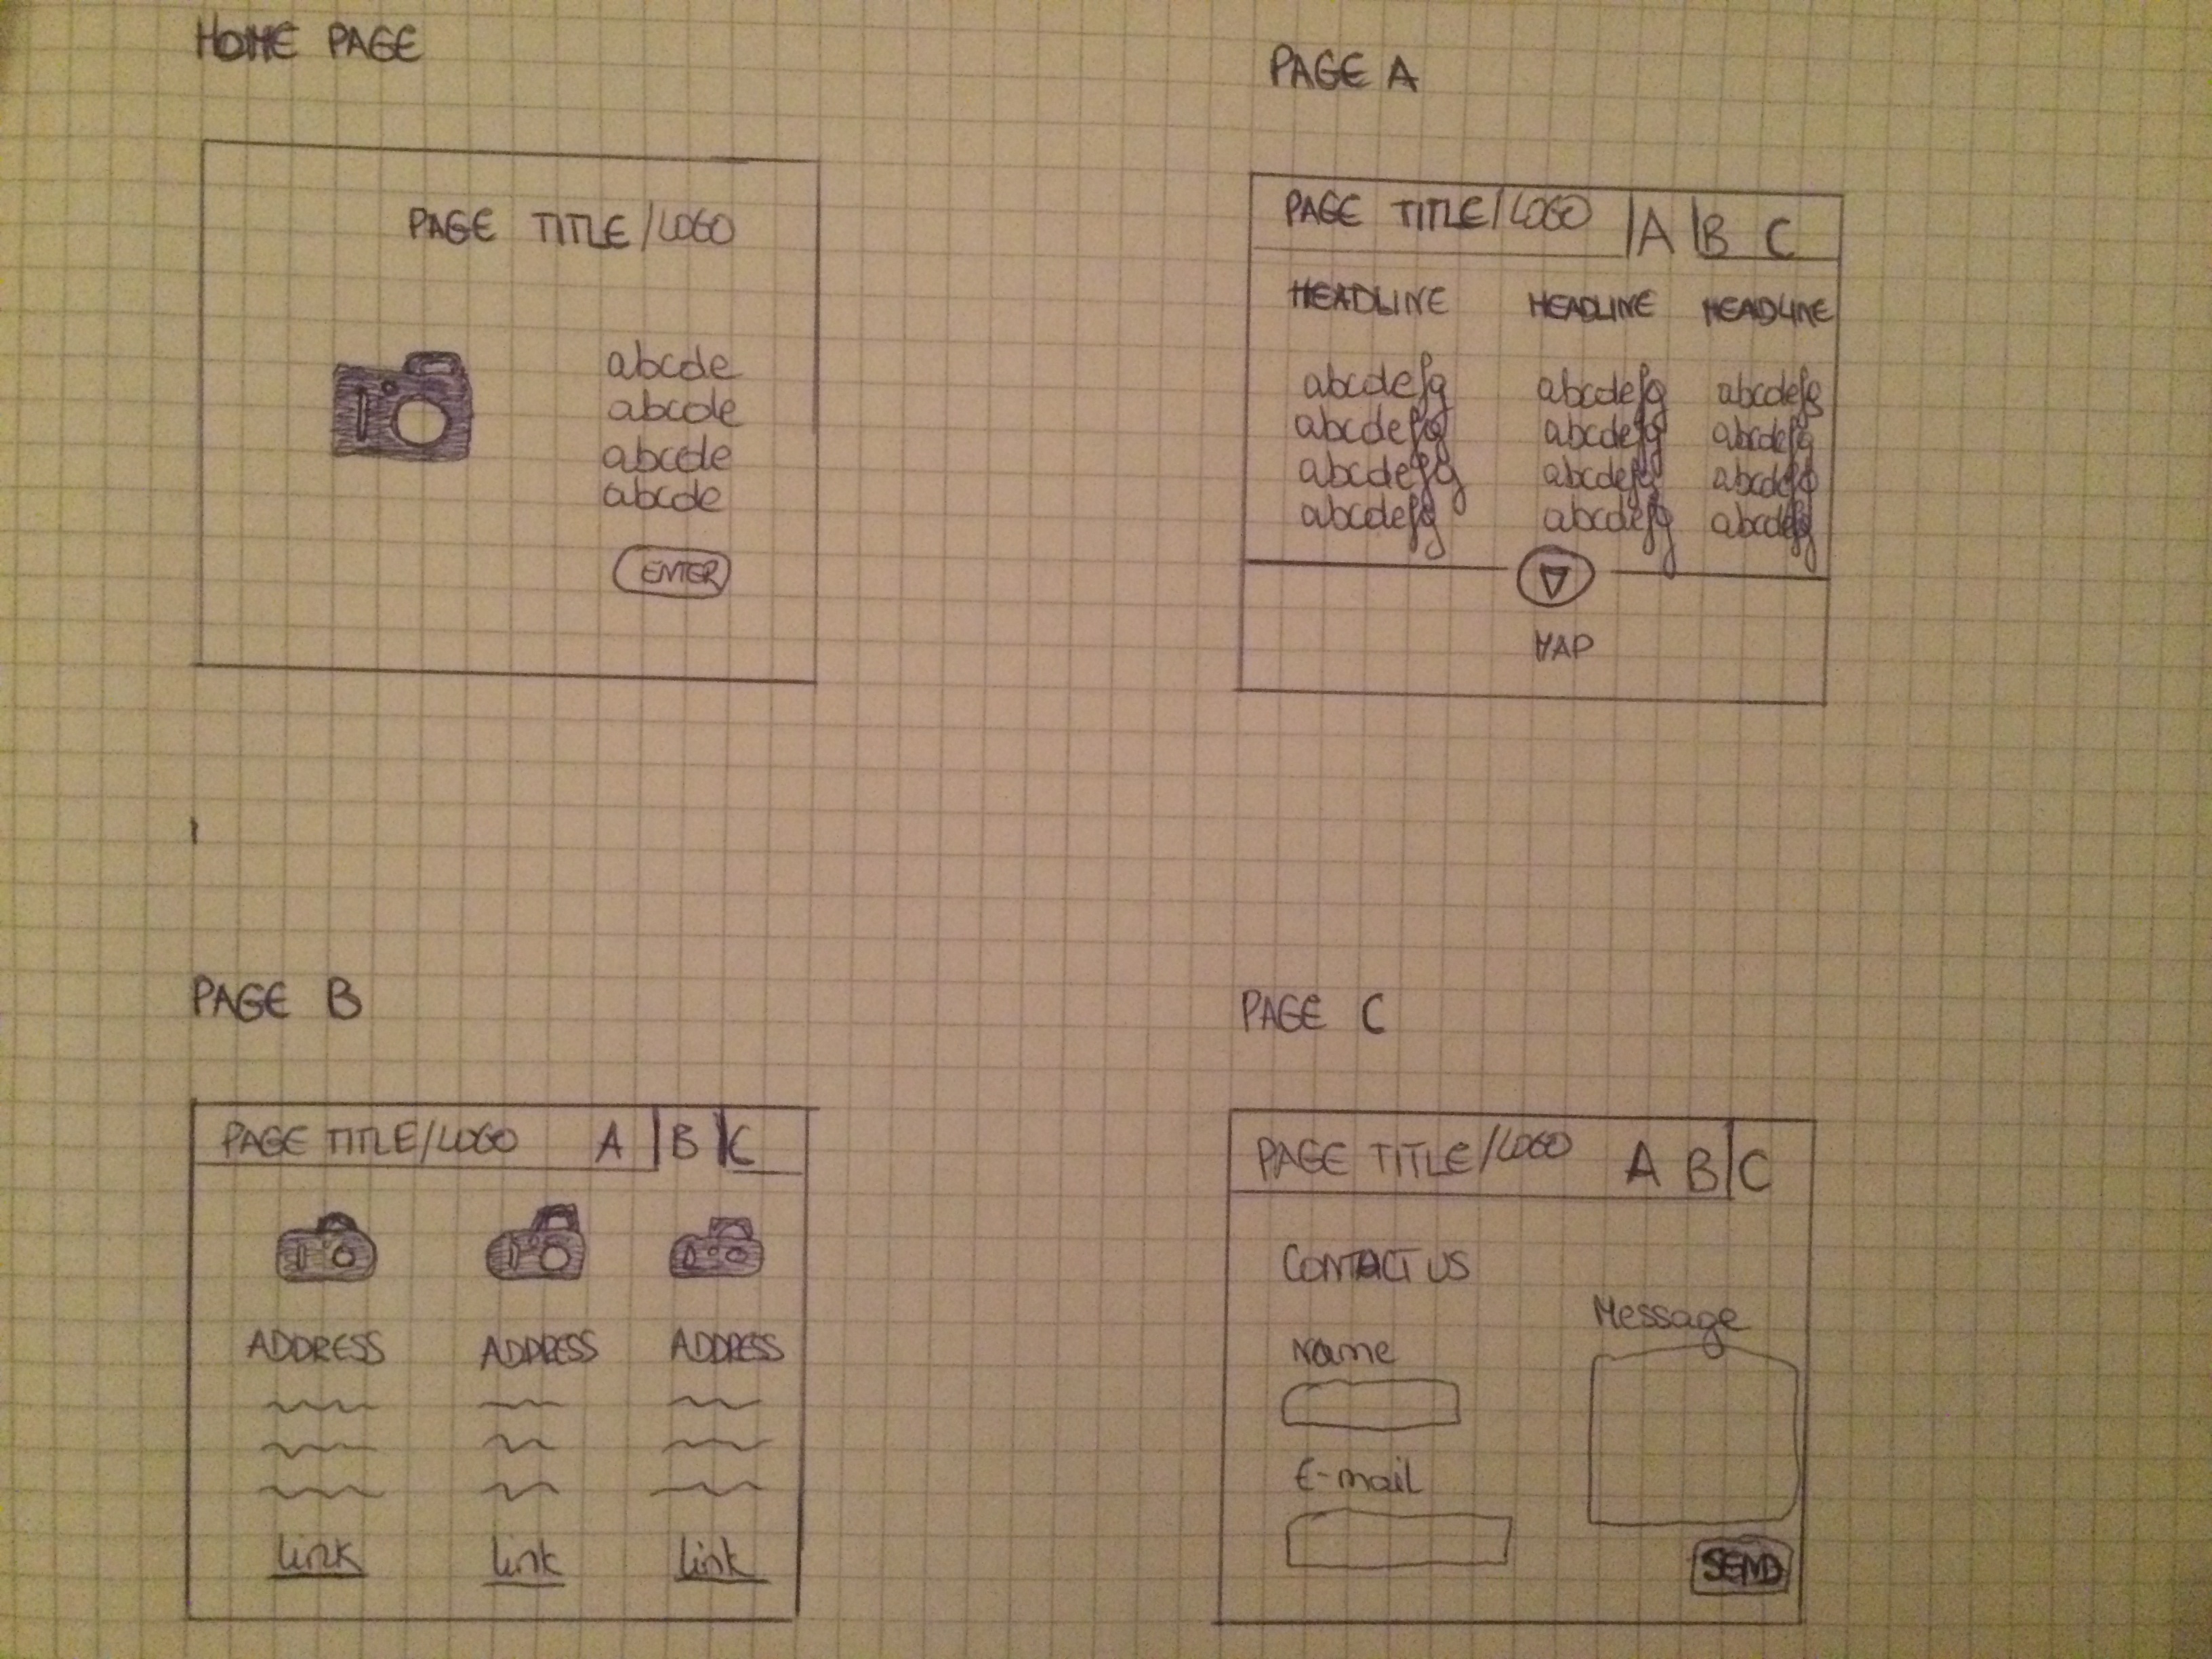 HOME PAGE
PAGE TITLE/LOGO
abcde
abcde
abcde
abcde
ENTER
PAGE A
PAGE TITLE/LOGO A B C
HEADLINE HEADLINE HEADLINE
abcdefg abcdefg abcdefg
abcdefg abcdefg abcdefg
abcdefg abcdefg abcdefg
abcdefg abcdefg abcdefg
MAP
PAGE B
PAGE TITLE/LOGO A B C
ADDRESS ADDRESS ADDRESS
link link link
PAGE C
PAGE TITLE/LOGO A B C
CONTACT US
Message
Name
E-mail
SEND